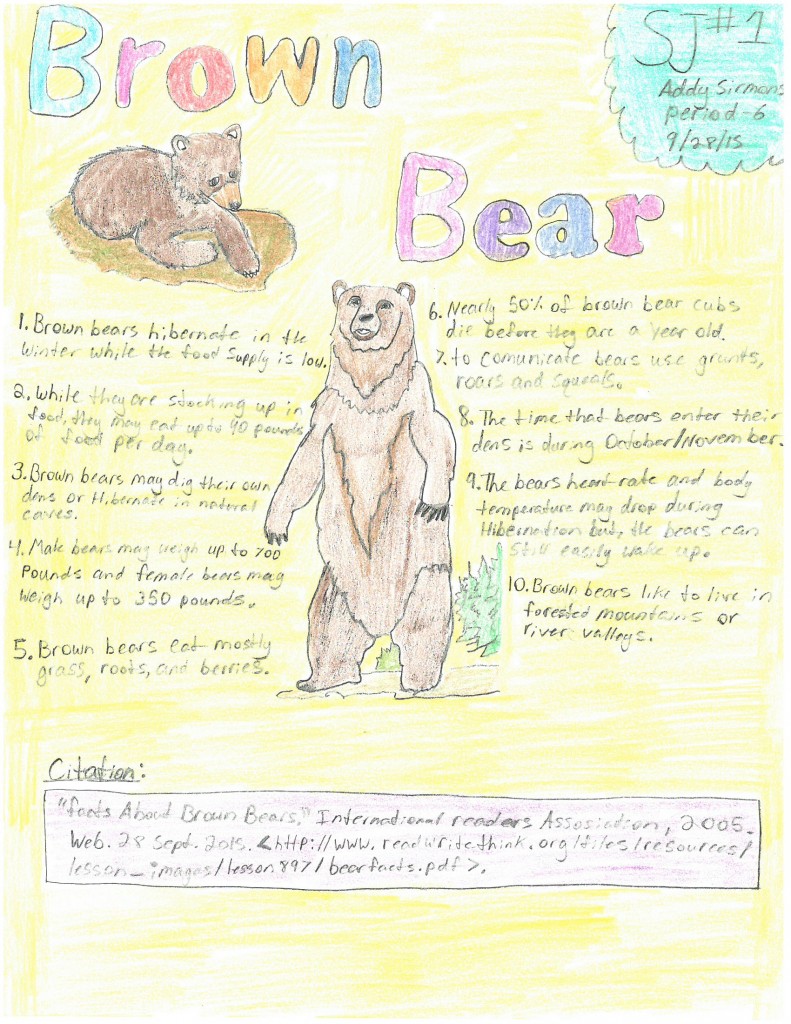 Brown
Bear
SJ#1
Addy Sirmans
period-6
9/28/15
1. Brown bears hibernate in the
winter while the food supply is low.
2. While they are stocking up in
food, they may eat up to 90 pounds
of food per day.
3. Brown bears may dig their own
dens or Hibernate in natural
caves.
4. Male bears may weigh up to 700
Pounds and female bears may
weigh up to 350 pounds.
5. Brown bears eat mostly
grass, roots, and berries.
6. Nearly 50% of brown bear cubs
die before they are a year old.
7. to comunicate bears use grunts,
roars and squeals.
8. The time that bears enter their
dens is during October/November.
9. The bears heart rate and body
temperature may drop during
Hibernation but, the bears can
still easily wake up.
10. Brown bears like to live in
forested mountains or
river valleys.
Citation:
"facts About Brown Bears," International readers Association, 2005.
Web. 28 Sept. 2015. <http://www.readwritethink.org/files/resources/
lesson_images/lesson897/bearfacts.pdf>.